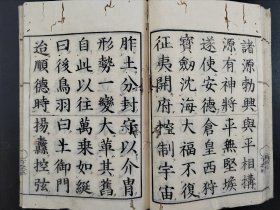 諸源勃興與平相搆
源有神將平無堅堠
遂使安德倉皇西狩
寶劔沈海大福不復
征夷開府控制宇宙
胙土分封寔以介冑
形勢一變大革其舊
自此以往萬乘如綖
曰後鳥羽曰土御門
迨順德時揚纛控弦